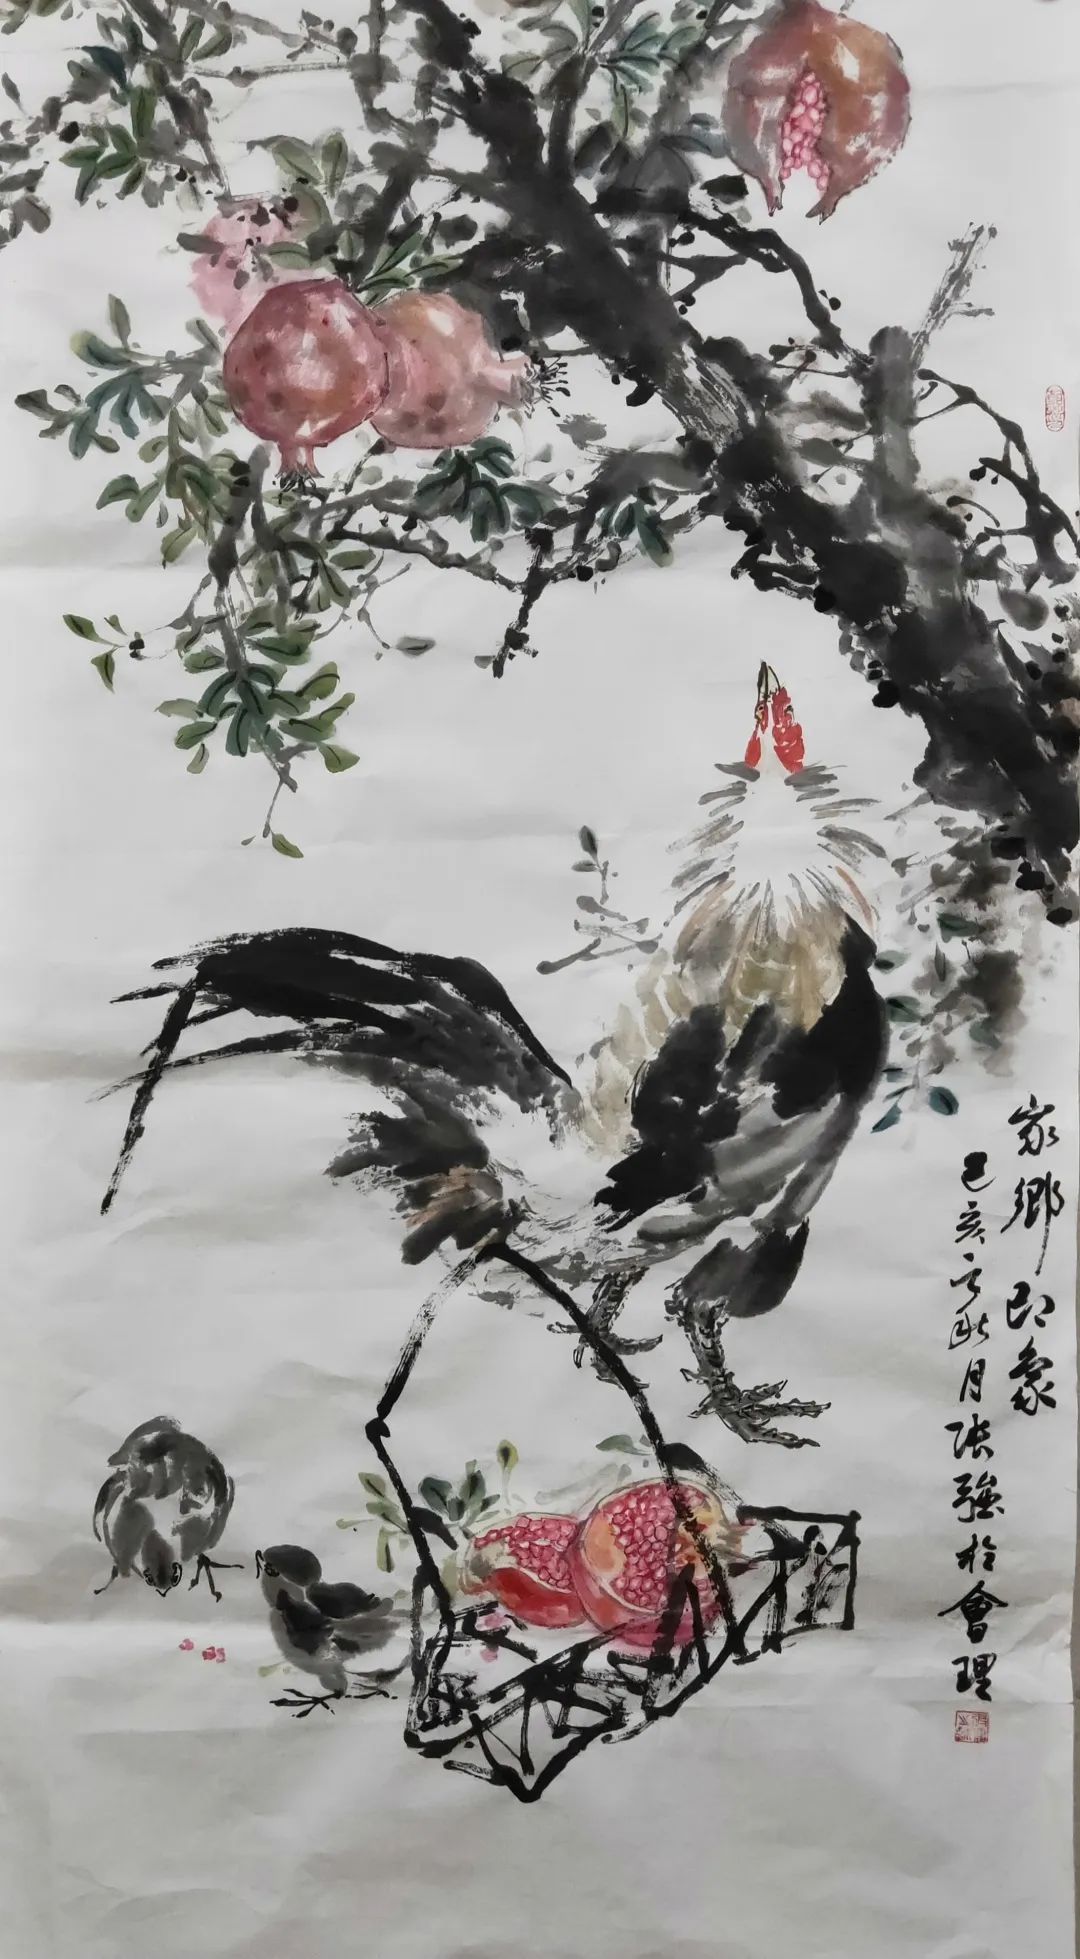 家鄉即象
己亥之秋月張強於會理